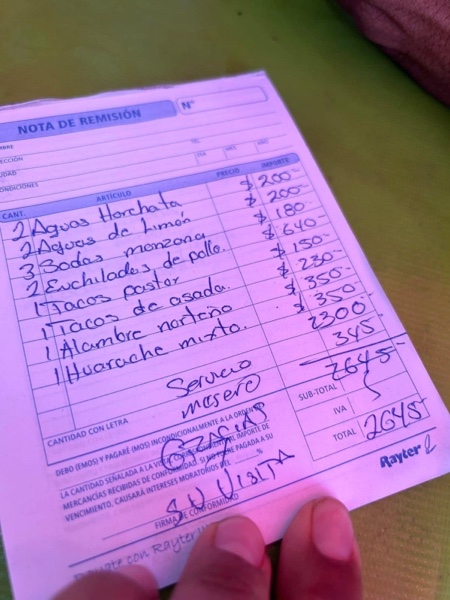 NOTA DE REMISIÓN
N°
MBRE
ECCIÓN
UDAD
ONDICIONES
DIA MES AÑO
CANT. ARTÍCULO PRECIO IMPORTE
2 Aguas Horchata $ 200-
2 Aguas de Limón $ 200-
3 Sodas manzana $ 180-
2 Enchiladas de pollo. $ 640-
1 Tacos pastor $ 150-
1 Tacos de asada. $ 230-
1 Alambre norteño $ 350-
1 Huarache mixto. $ 350-
2300-
Servicio 345-
mesero 2645-
CANTIDAD CON LETRA
SUB-TOTAL
IVA
TOTAL 2645-
DEBO (EMOS) Y PAGARÉ (MOS) INCONDICIONALMENTE A LA ORDEN DE
LA CANTIDAD SEÑALADA A LA VISTA EL IMPORTE DE
MERCANCÍAS RECIBIDAS DE CONFORMIDAD. SI NO FUERE PAGADA A SU
VENCIMIENTO, CAUSARÁ INTERESES MORATORIOS DEL %
GRACIAS
SU VISITA
FIRMA DE CONFORMIDAD
Rayter
con Rayter